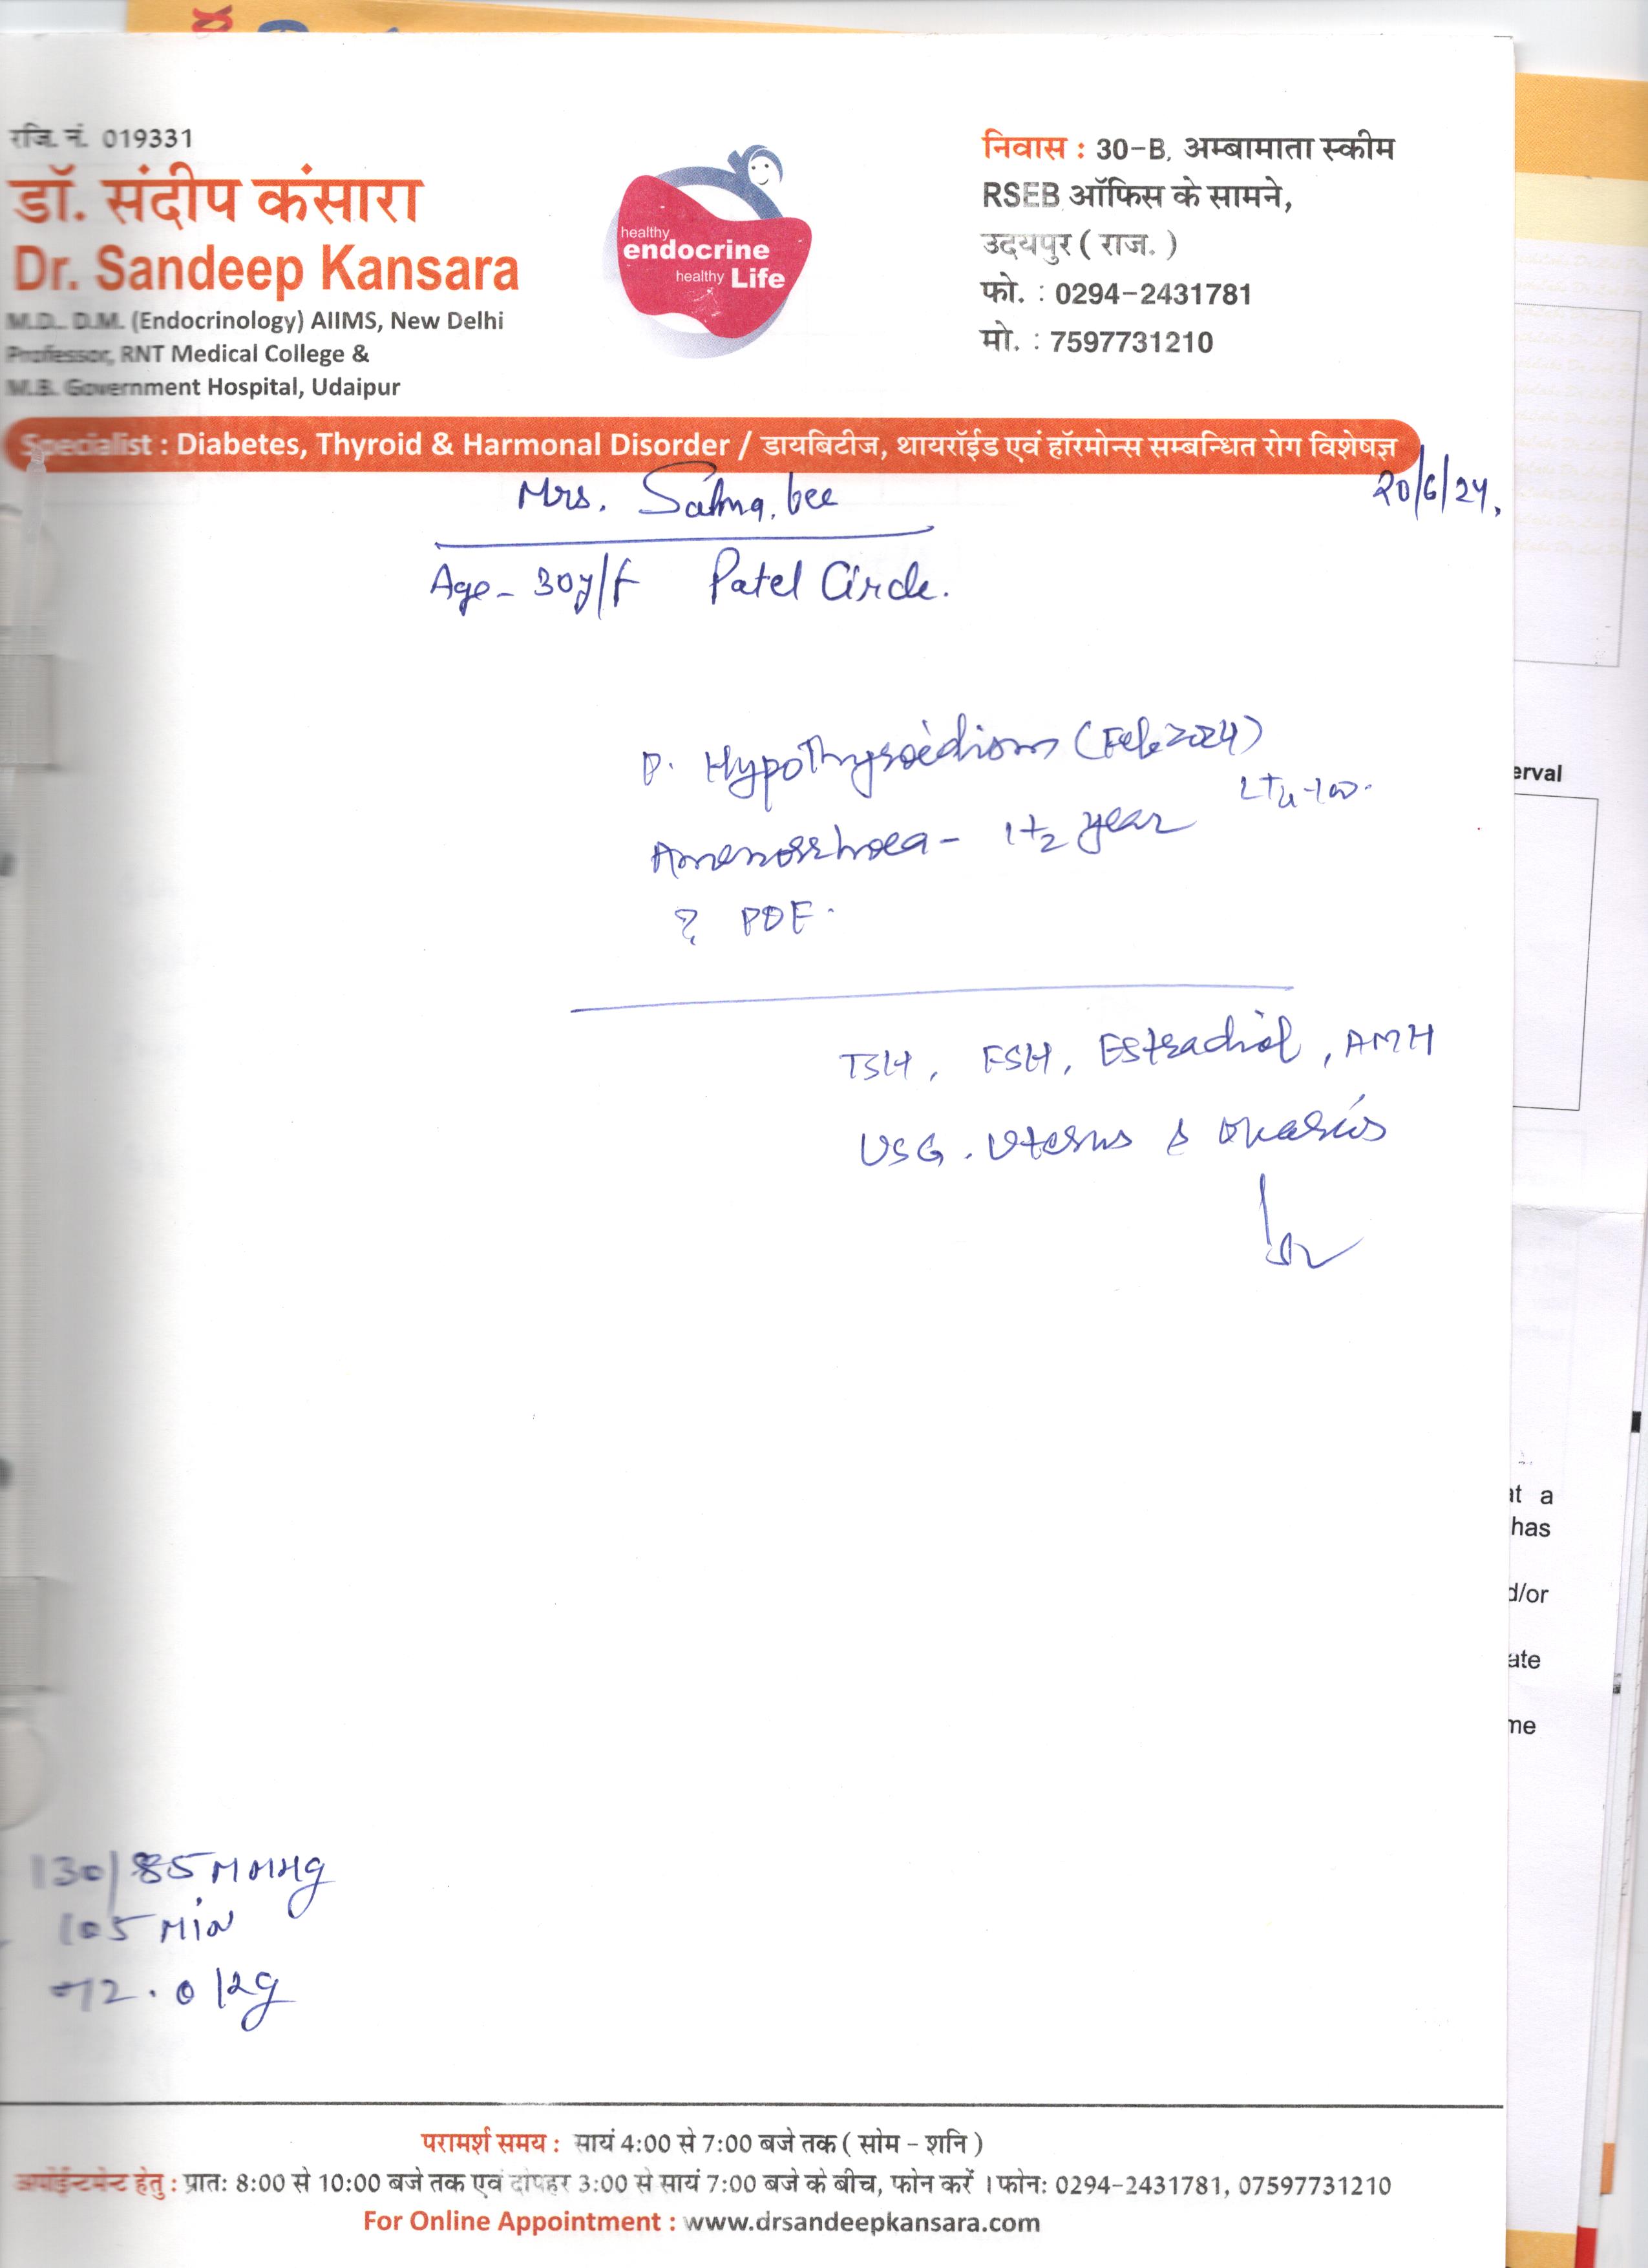 रजि. नं. 019331
डॉ. संदीप कंसारा
Dr. Sandeep Kansara
M.D., D.M. (Endocrinology) AIIMS, New Delhi
Professor, RNT Medical College &
M.B. Government Hospital, Udaipur
healthy
endocrine
healthy Life
निवास : 30-B, अम्बामाता स्कीम
RSEB ऑफिस के सामने,
उदयपुर ( राज. )
फो. : 0294-2431781
मो. : 7597731210
Specialist : Diabetes, Thyroid & Harmonal Disorder / डायबिटीज, थायरॉईड एवं हॉरमोन्स सम्बन्धित रोग विशेषज्ञ
20/6/24.
Mrs. Salma. bee
Age - 30y/f Patel Circle.
P. Hypothyroidism (Feb 2024)
LT4-100.
Amenorrhoea - 1+2 year
? POF.
TSH, FSH, Estradiol, AMH
USG. Uterus & Ovaries
erval
at a
has
d/or
ate
me
130/85 MMHg
105 MiN
72.0 kg
परामर्श समय : सायं 4:00 से 7:00 बजे तक ( सोम - शनि )
अपॉईन्टमेन्ट हेतु : प्रात: 8:00 से 10:00 बजे तक एवं दोपहर 3:00 से सायं 7:00 बजे के बीच, फोन करें । फोन: 0294-2431781, 07597731210
For Online Appointment : www.drsandeepkansara.com